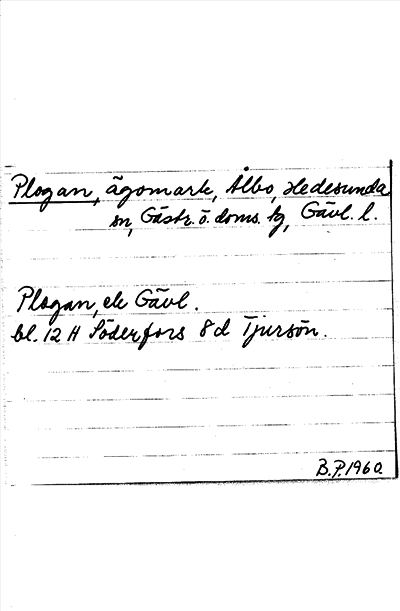 Plogan, ägomark, Ålbo, Hedesunda
sn, Gästr. ö. doms. hg, Gävl. l.
Plogan, ek Gävl.
bl. 12 H Söderfors 8 d Tjursön.
B.P. 1960.